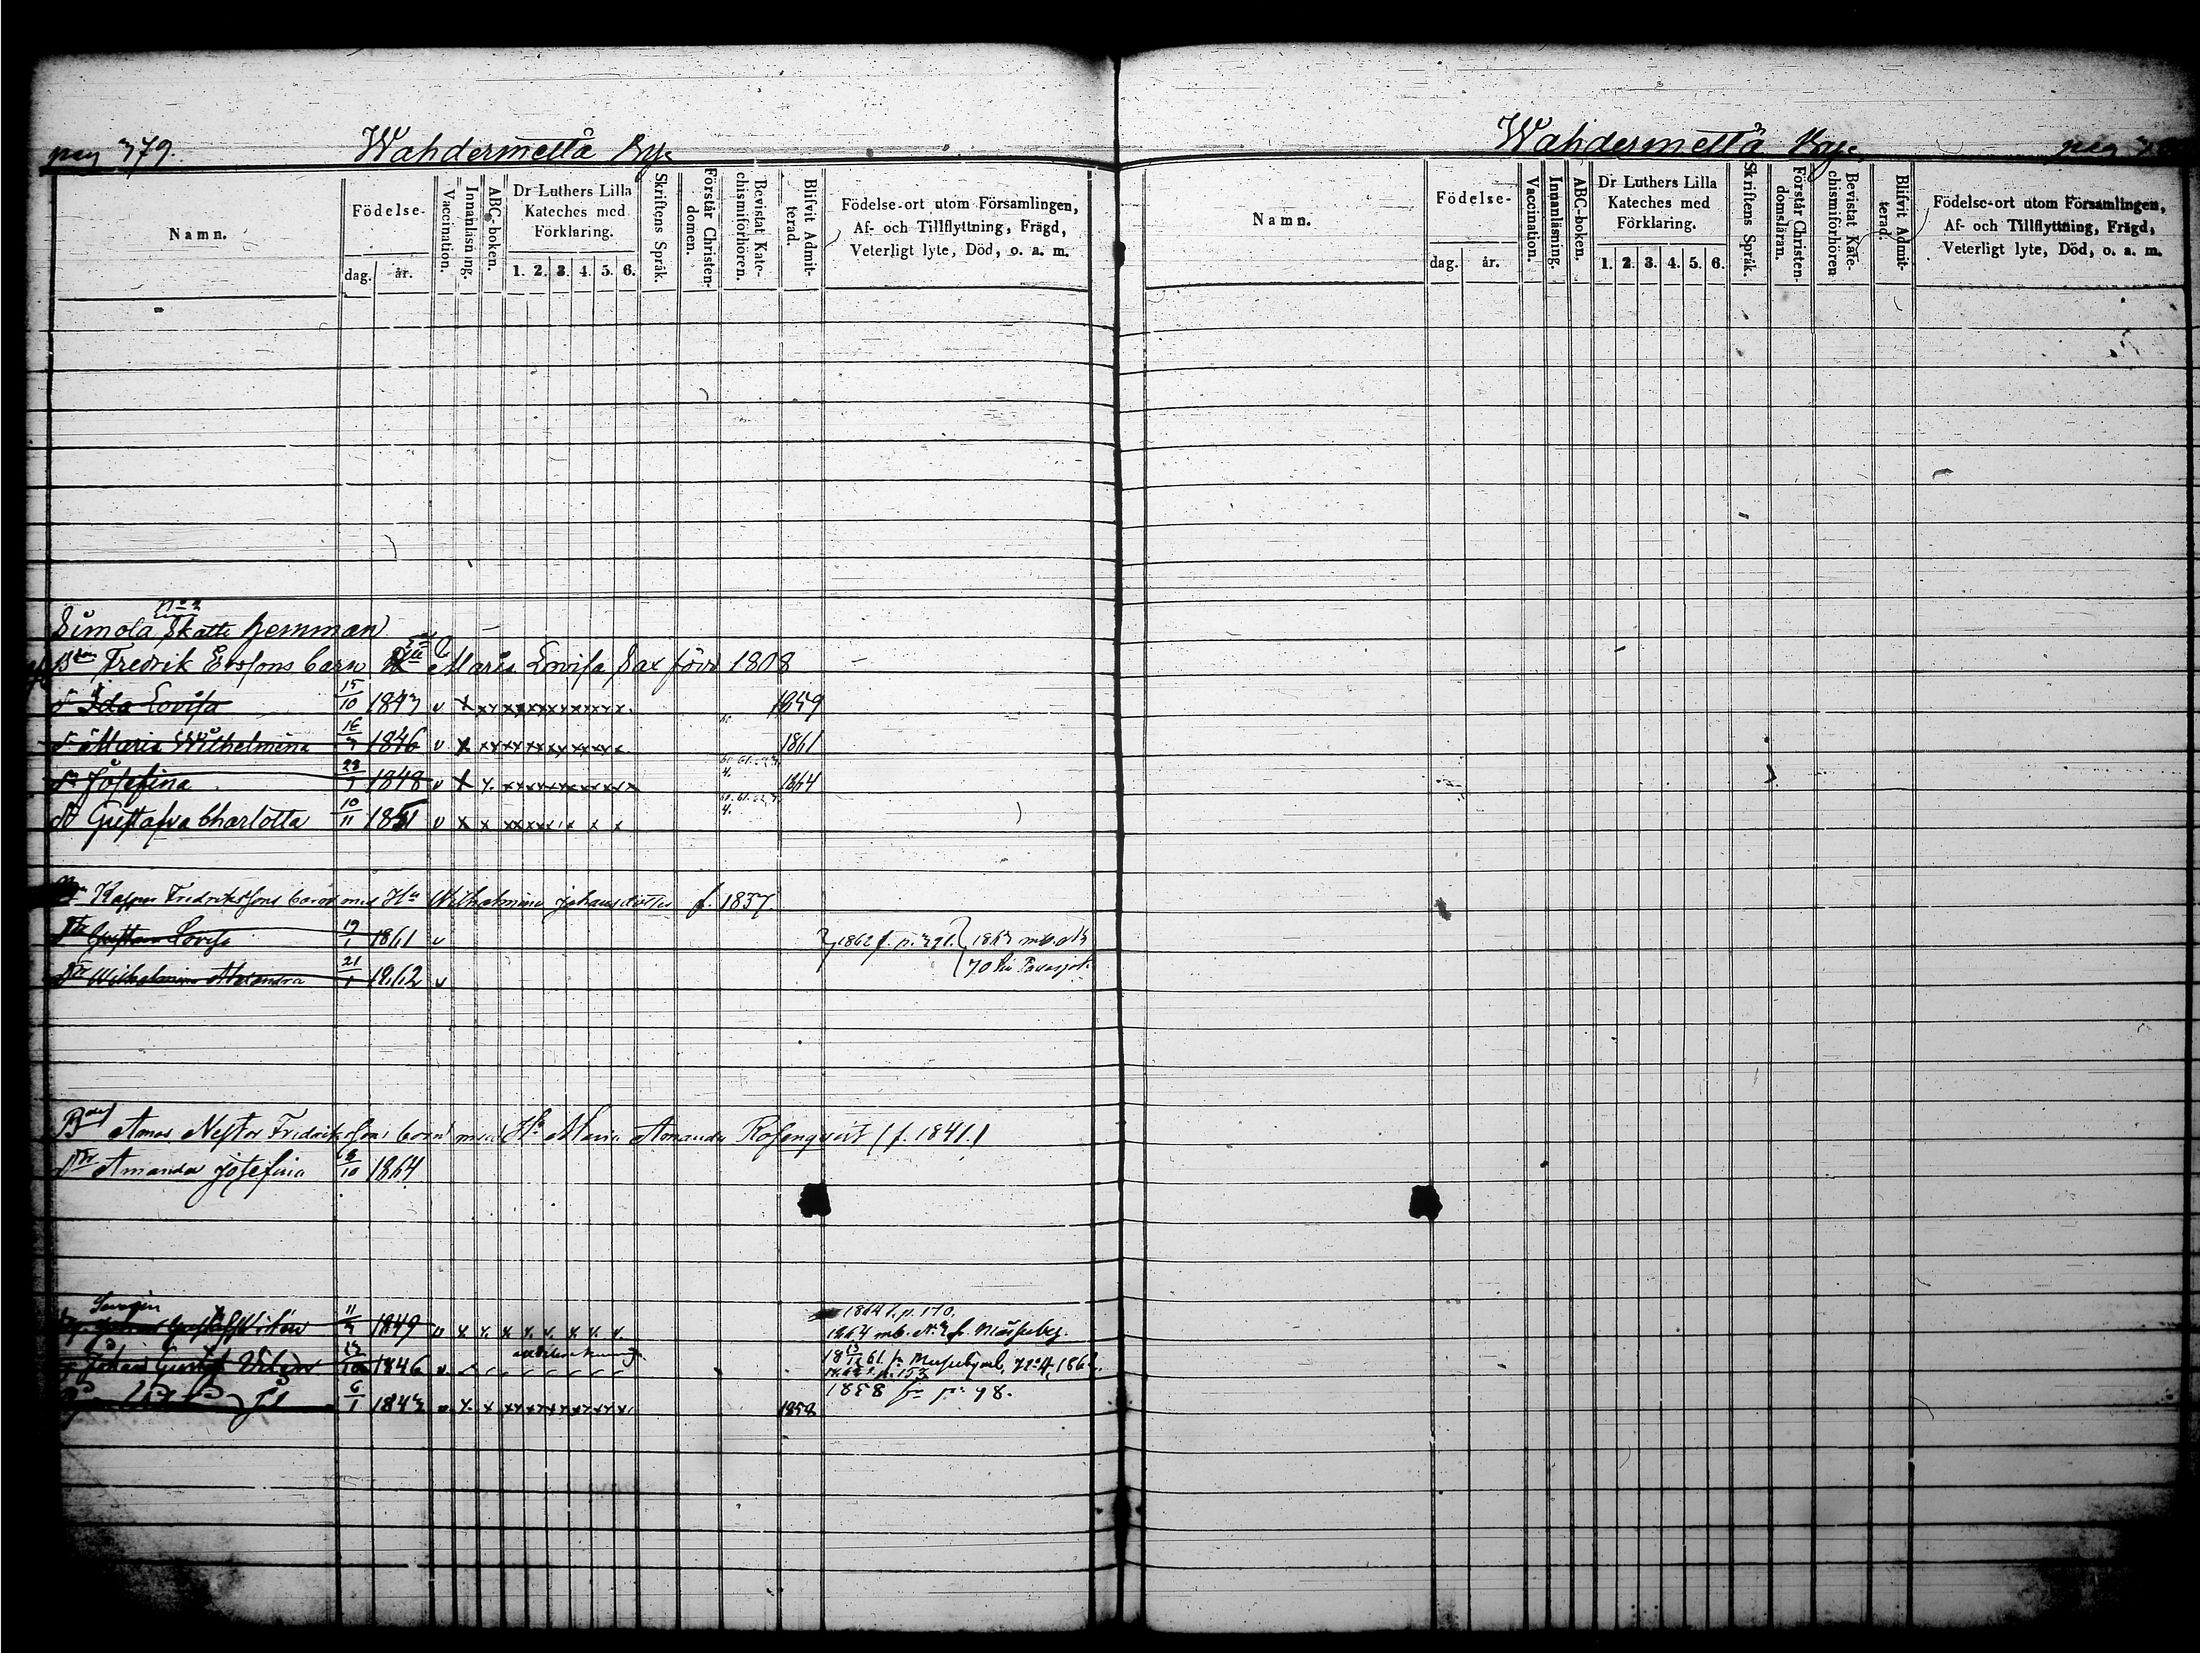 pag 379.
Wahdermettä By.
Namn.
Födelse-
dag.
år.
Vaccination.
Innanläsning.
ABC-boken.
Dr Luthers Lilla
Kateches med
Förklaring.
1. 2. 3. 4. 5. 6.
Skriftens Språk.
Förstår Christen-
domen.
Bevistat Kate-
chismiförhören.
Blifvit Admit-
terad.
Födelse-ort utom Församlingen,
Af- och Tillflyttning, Frägd,
Veterligt lyte, Död, o. a. m.
No 2
Simola Skatte Hemman
Fredrik Ersons barn Maria Lovisa Sax född 1808
Ida Lovisa 15/10 1843 v x xx xxxxxxxxxxx 1859
Maria Wilhelmina 16/3 1846 v x xx xxxxxxxxxxx 1861
Josefina 28/3 1848 v x x xxxxxxxxxxxx 1864
Gustafva Charlotta 10/11 1851 v x x xxxxxx x x
Fredrikssons barn med Wilhelmina Johansdotter f. 1837.
Lovisa 19/1 1861 v 1862 f. p. 391.
Wilhelmina Alexandra 21/1 1862 v
Amos Nestor Fredriksons barn med Hu Maria Amanda Rosenqvist (f. 1841.)
Dr Amanda Josefina 1864
1864 f. p. 170.
1849 v x x x x x x x x 1864 mb. No 3 fr.
Johan Gustaf 1846 v
p. 153
1858 p. 98.
6/1 1843 v x x xxxxxxxxxxx 1858
Wahdermettä By.
pag
Namn.
Födelse-
dag.
år.
Vaccination.
Innanläsning.
ABC-boken.
Dr Luthers Lilla
Kateches med
Förklaring.
1. 2. 3. 4. 5. 6.
Skriftens Språk.
Förstår Christen-
domsläran.
Bevistat Kate-
chismiförhören.
Blifvit Admit-
terad.
Födelse-ort utom Församlingen,
Af- och Tillflyttning, Frägd,
Veterligt lyte, Död, o. a. m.